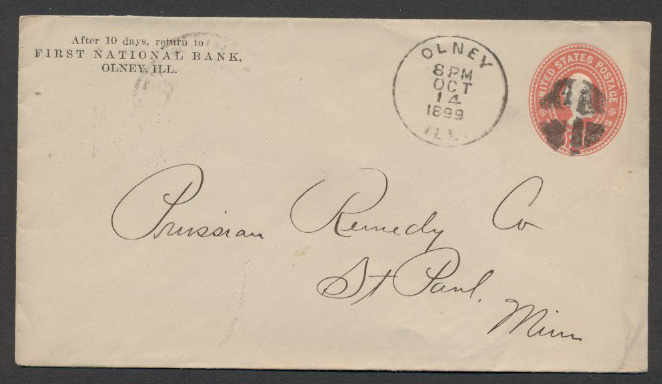 After 10 days, return to
FIRST NATIONAL BANK,
OLNEY, ILL.
OLNEY
8 PM
OCT
14
1899
ILL.
UNITED STATES POSTAGE
Prussian Remedy Co
St Paul,
Minn